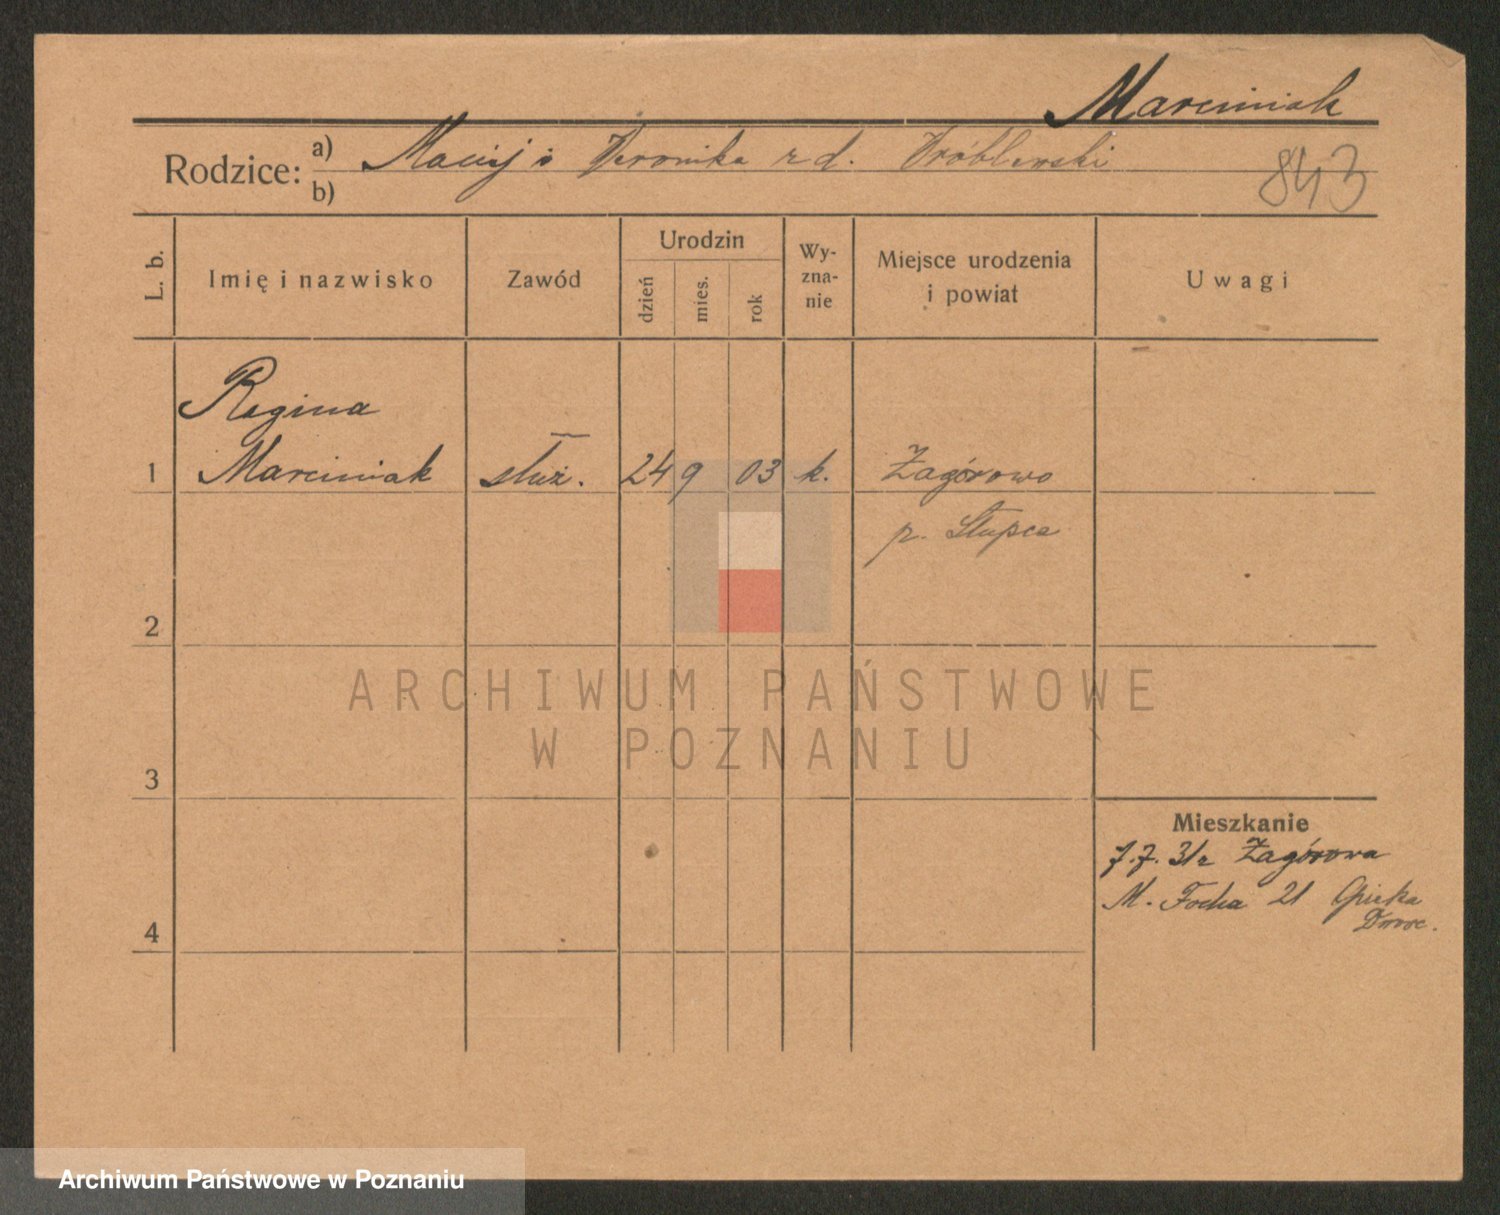 Marciniak
Rodzice: a) Maciej i Weronika z d. Wróblewski
b)
843
L. b.
Imię i nazwisko
Zawód
Urodzin
dzień
mies.
rok
Wy-
zna-
nie
Miejsce urodzenia
i powiat
Uwagi
Regina
1 Marciniak służ. 24 9 03 k. Zagórowo
p. Słupca
2
ARCHIWUM PAŃSTWOWE
W POZNANIU
3
Mieszkanie
7.7.31 z Zagórowa
M. Focha 21 Opieka
Dworc.
4
Archiwum Państwowe w Poznaniu